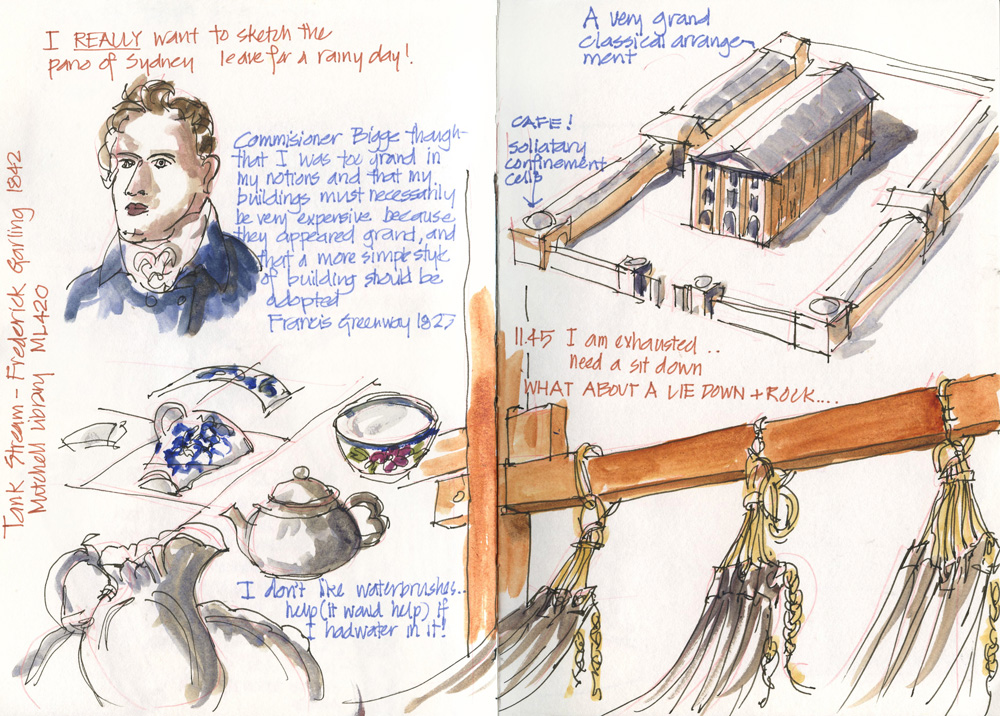 I REALLY want to sketch the
pano of Sydney leave for a rainy day!
Commisioner Bigge though-
that I was too grand in
my notions and that my
buildings must necessarily
be very expensive because
they appeared grand, and
that a more simple style
of building should be
adopted
Francis Greenway 1825
Tank Stream - Frederick Garling 1842
Mitchell Library ML420
I don't like waterbrushes..
help (it would help) if
I had water in it!
A very grand
classical arrange-
ment
CAFE!
soliatary
confinement
cells
11.45 I am exhausted ..
need a sit down
WHAT ABOUT A LIE DOWN + ROCK....